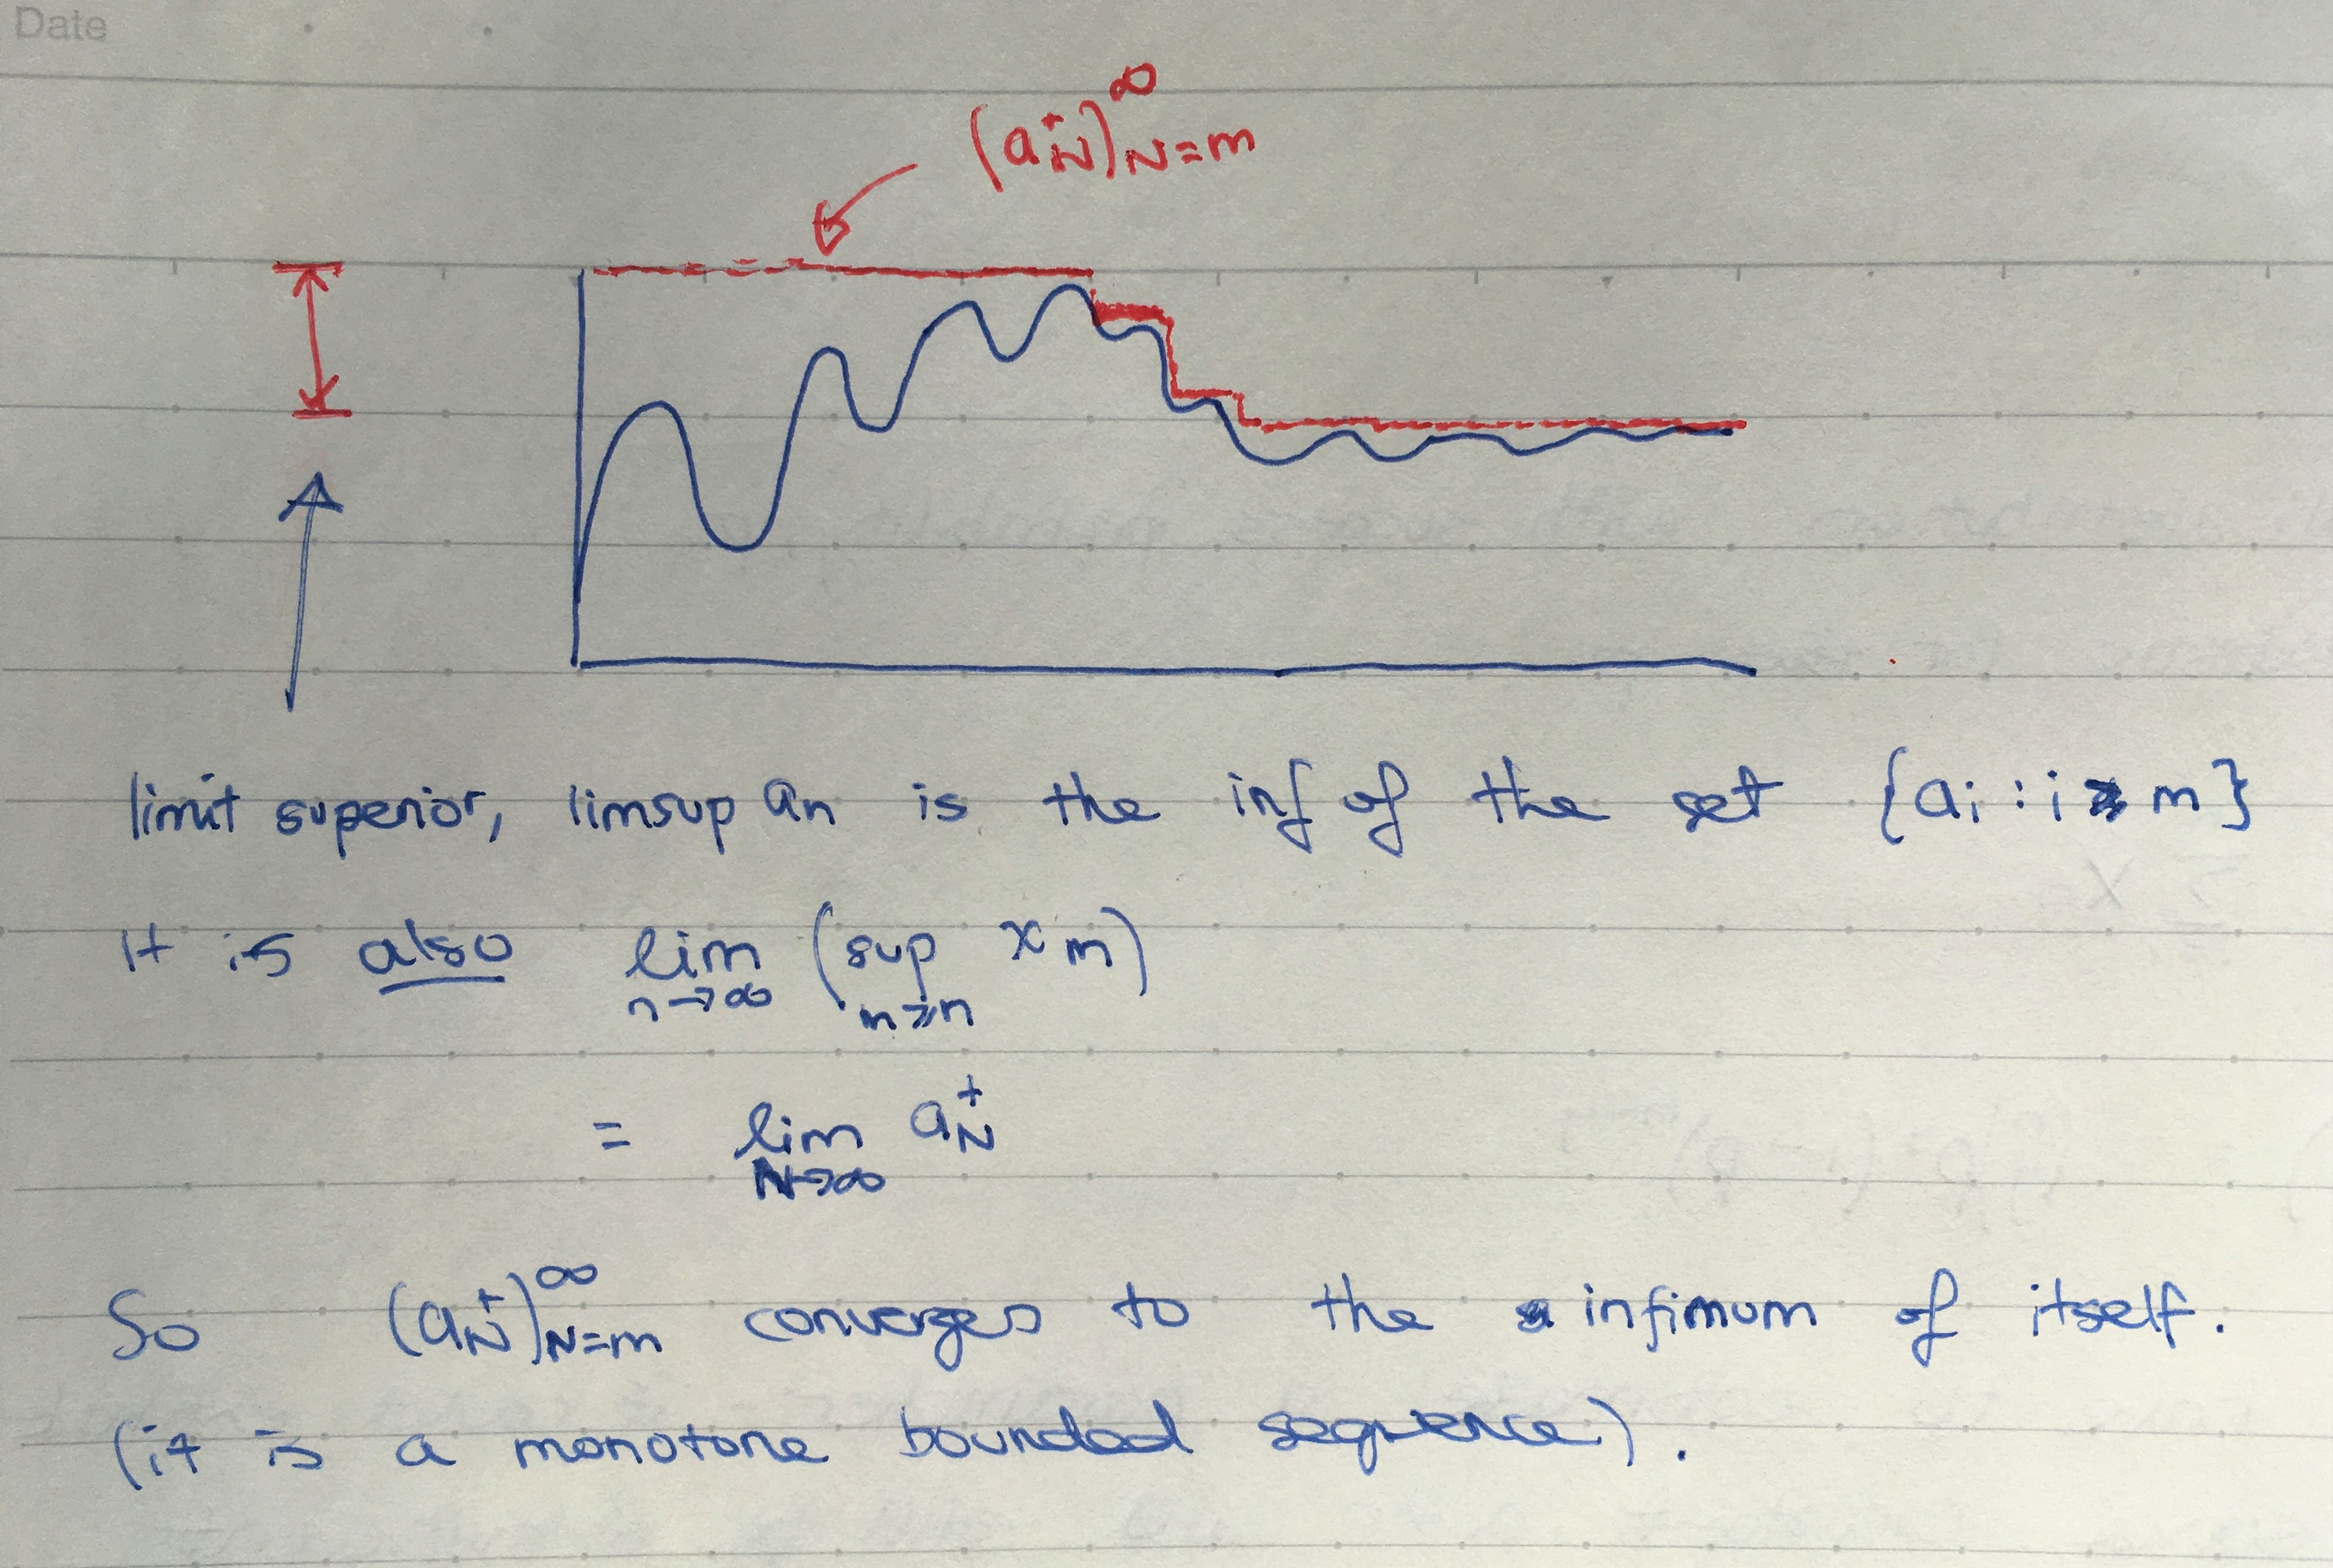 Date
(a⁺_N)^∞_{N=m}
limit superior, limsup an is the inf of the set {ai : i ≥ m}
It is also lim_{n→∞} (sup_{m≥n} xm)
= lim_{N→∞} a⁺_N
So (a⁺_N)^∞_{N=m} converges to the infimum of itself.
(it is a monotone bounded sequence).